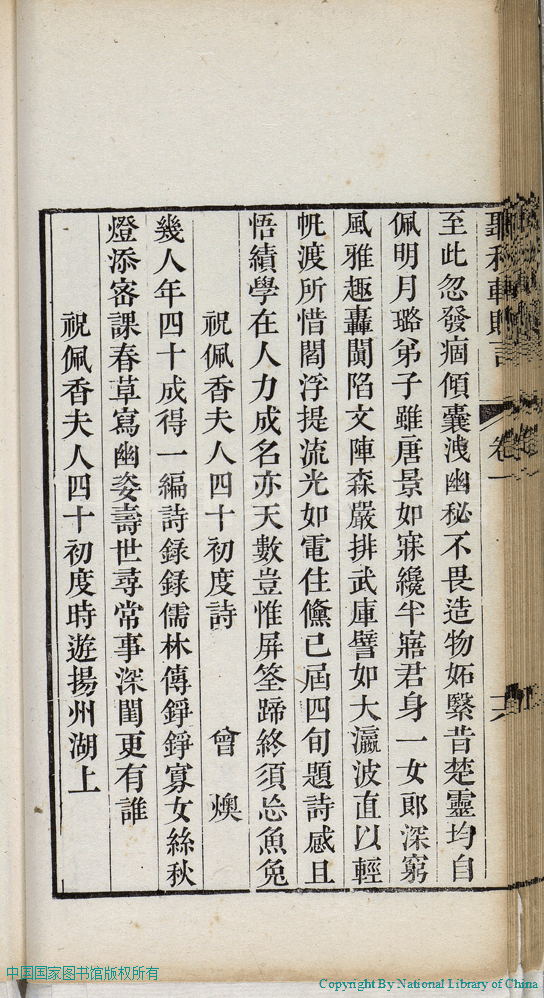 聽秋軒贈言 卷一 十六
至此忽發痼傾囊洩幽秘不畏造物妬繄昔楚靈均自
佩明月璐弟子雖唐景如寐纔半寤君身一女郎深窮
風雅趣轟闐陷文陣森嚴排武庫譬如大瀛波直以輕
帆渡所惜閻浮提流光如電住儵已屆四旬題詩感且
悟績學在人力成名亦天數豈惟屏筌蹄終須忘魚兔
祝佩香夫人四十初度詩 曾燠
幾人年四十成得一編詩錄錄儒林傳錚錚寡女絲秋
燈添密課春草寫幽姿壽世尋常事深閨更有誰
祝佩香夫人四十初度時遊揚州湖上
中国国家图书馆版权所有
Copyright By National Library of China